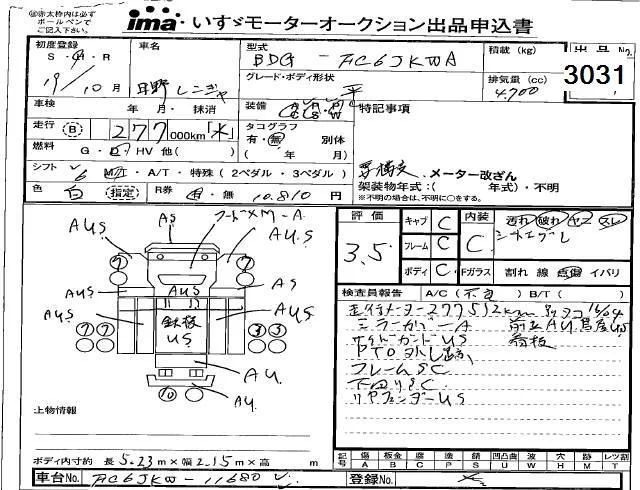 ㊟赤太枠内は必ず
ボールペンで
ご記入下さい。
ima いすゞモーターオークション出品申込書
初度登録
S・H・R
19/10月
車名
日野 レンジャ
型式
BDG-FC6JKWA
グレード・ボディ形状
平
積載(kg)
排気量(cc)
4,700
出品No.
3031
車検 年・月・抹消
装備
特記事項
走行 B 277,000km「水」
タコグラフ
有・無 別体
( 年 月)
燃料 G・D・HV 他( )
・メーター改ざん
架装物年式:( 年式)・不明
※不明の場合は、不明に○をする。
シフト 6 M/T・A/T・特殊(2ペダル・3ペダル)
色 白 指定 R券 有・無 10,810円
評価
3.5
キャブ C
フレーム C
ボディ C
内装
C
Fガラス
汚れ 破れ ヤニ スレ
割れ 線 点傷 イバリ
フードメM-A
AS
AUS
AU.S
7
7
AUS
AUS
AS
AUS
AUS
鉄板
US
7 7
3 3
AU.
AU
10
検査員報告 A/C(不良) B/T( )
走行メーター277512km
ミラーカバーA
サイドガードUS
PTO外し跡
フレームSC
下回りSC
リアフェンダーUS
上物情報
ボディ内寸約 長5.23m×幅2.15m×高 m
記号 傷A 板金B 腐C 塗P 錆S 凹凸曲U 波W 穴H 跡M レツ割T
車台No. FC6JKW-11680
登録No.